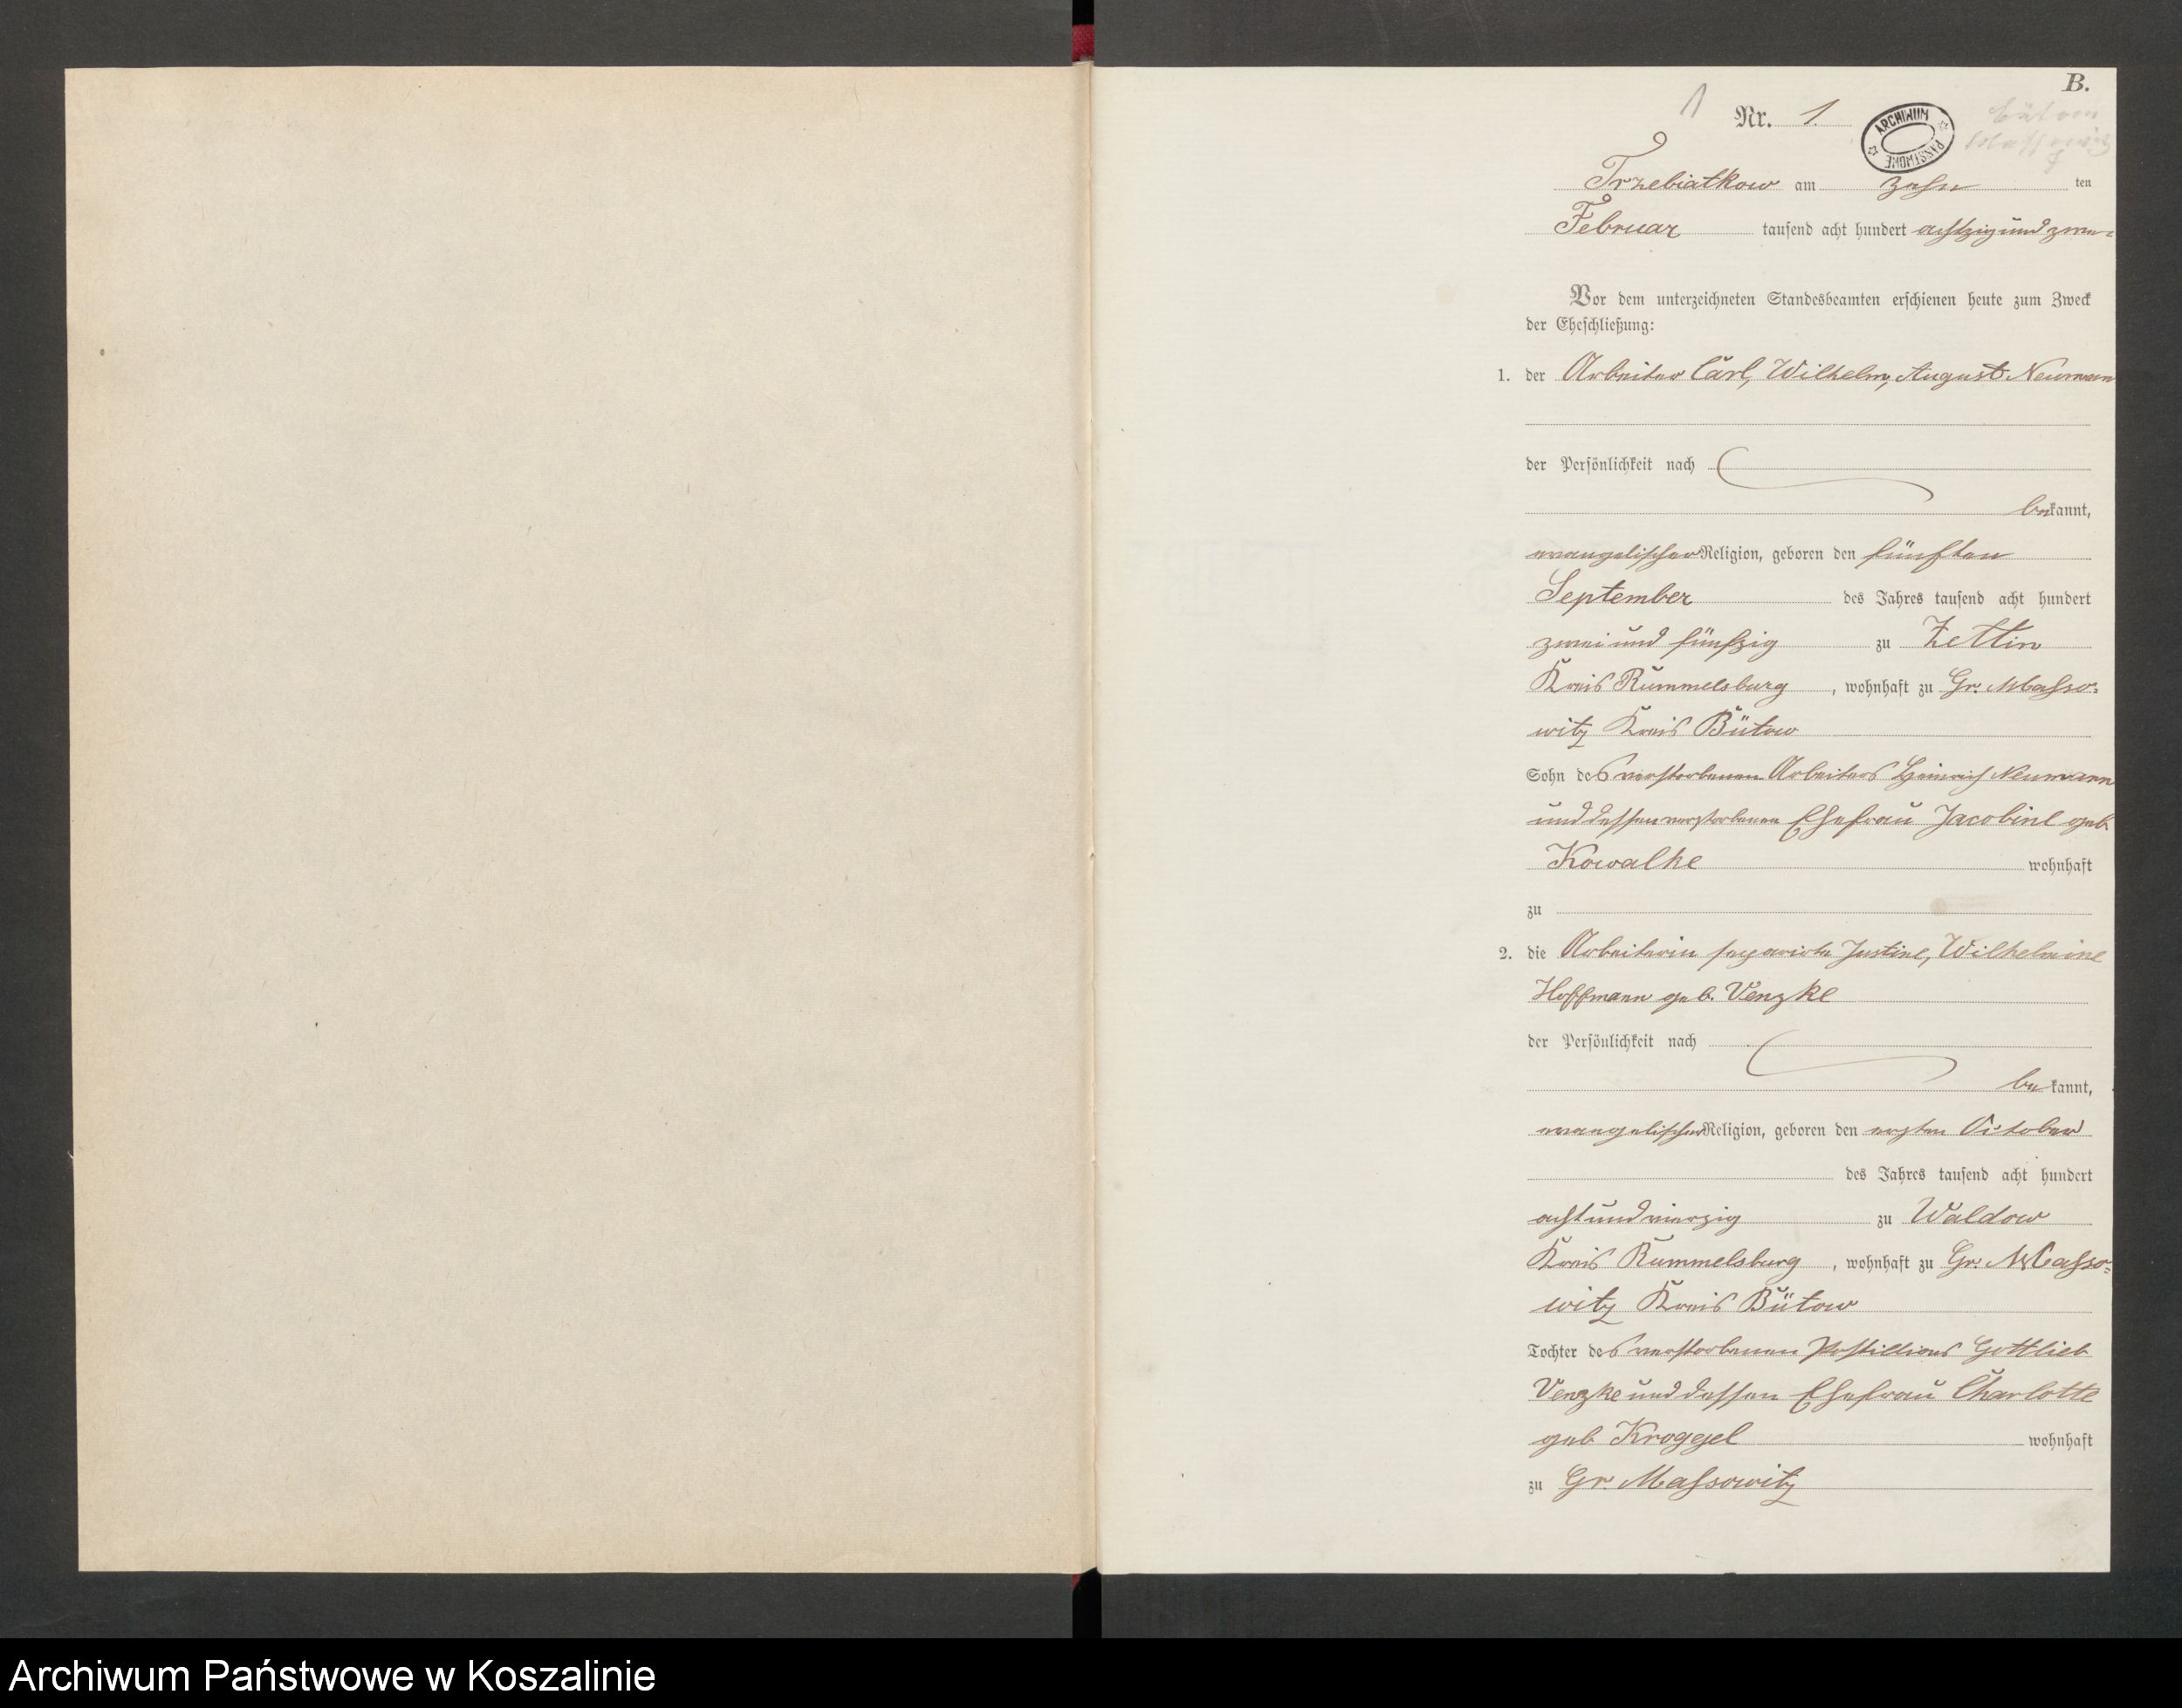 B.
1 Nr. 1.
ARCHIWUM PAŃSTWOWE
Bütow
Trzebiatkow am zehn ten
Februar tausend acht hundert achtzig und zwei
Vor dem unterzeichneten Standesbeamten erschienen heute zum Zweck
der Eheschließung:
1. der Arbeiter Carl, Wilhelm, August Neumann
der Persönlichkeit nach
bekannt,
evangelischer Religion, geboren den fünften
September des Jahres tausend acht hundert
zwei und fünfzig zu Zettin
Kreis Rummelsburg, wohnhaft zu Gr. Masso-
witz Kreis Bütow
Sohn des verstorbenen Arbeiters Heinrich Neumann
und dessen verstorbenen Ehefrau Jacobine geb.
Kowalke wohnhaft
zu
2. die Arbeiterin separirte Justine, Wilhelmine
Hoffmann geb. Venzke
der Persönlichkeit nach
bekannt,
evangelischer Religion, geboren den ersten October
des Jahres tausend acht hundert
acht und vierzig zu Waldow
Kreis Rummelsburg, wohnhaft zu Gr. Masso-
witz Kreis Bütow
Tochter des verstorbenen Postillions Gottlieb
Venzke und dessen Ehefrau Charlotte
geb Kroggel wohnhaft
zu Gr. Massowitz
Archiwum Państwowe w Koszalinie